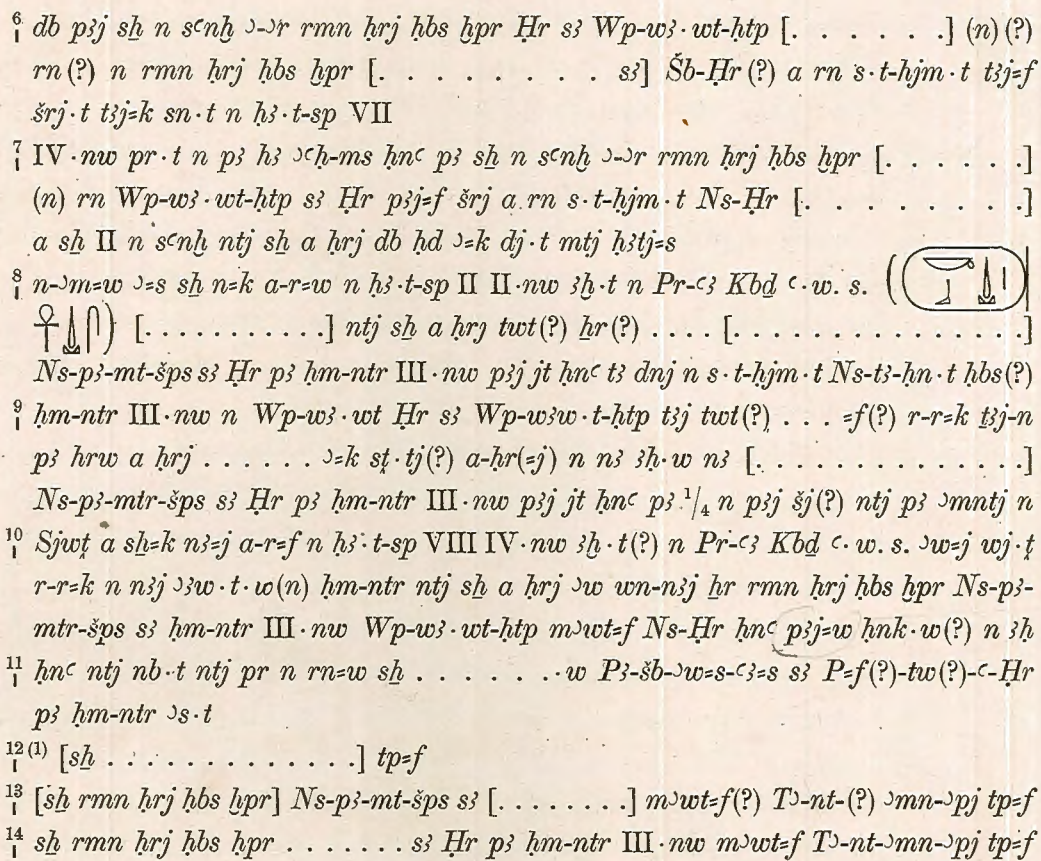 6 db pꜣj sẖ n sꜥnḫ ꜣ-ꜣr rmn ḥrj ḥbs ḫpr Ḥr sꜣ Wp-wꜣ·wt-ḥtp [. . . . . .] (n)(?)
rn(?) n rmn ḥrj ḥbs ḫpr [. . . . . . . . sꜣ] Šb-Ḥr(?) a rn s·t-hjm·t tꜣj⸗f
šrj·t tꜣj⸗k sn·t n ḥꜣ·t-sp VII
7 IV·nw pr·t n pꜣ hꜣ ꜣꜥḥ-ms ḥnꜥ pꜣ sẖ n sꜥnḫ ꜣ-ꜣr rmn ḥrj ḥbs ḫpr [. . . . . .]
(n) rn Wp-wꜣ·wt-ḥtp sꜣ Ḥr pꜣj⸗f šrj a rn s·t-hjm·t Ns-Ḥr [. . . . . . . . .]
a sẖ II n sꜥnḫ ntj sẖ a ḥrj db hd ꜣ⸗k dj·t mtj ḥꜣtj⸗s
8 n-ꜣm⸗w ꜣ⸗s sẖ n⸗k a-r⸗w n ḥꜣ·t-sp II II·nw ꜣḫ·t n Pr-ꜥꜣ Kbḏ ꜥ·w. s. (
) [. . . . . . . . . . .] ntj sẖ a ḥrj twt(?) ẖr(?) . . . . [. . . . . . . . . . . . . . .]
Ns-pꜣ-mt-šps sꜣ Ḥr pꜣ ḥm-ntr III·nw pꜣj jt ḥnꜥ tꜣ dnj n s·t-hjm·t Ns-tꜣ-ḥn·t ḥbs(?)
9 ḥm-ntr III·nw n Wp-wꜣ·wt Ḥr sꜣ Wp-wꜣw·t-ḥtp tꜣj twt(?) . . . ⸗f(?) r-r⸗k ṯꜣj-n
pꜣ hrw a ḥrj . . . . . . ꜣ⸗k sṯ·tj(?) a-ḥr(⸗j) n nꜣ ꜣḥ·w nꜣ [. . . . . . . . . . . . . .]
Ns-pꜣ-mtr-šps sꜣ Ḥr pꜣ ḥm-ntr III·nw pꜣj jt ḥnꜥ pꜣ ¹/₄ n pꜣj šj(?) ntj pꜣ ꜣmntj n
10 Sjwṯ a sẖ⸗k nꜣ⸗j a-r⸗f n ḥꜣ·t-sp VIII IV·nw ꜣḫ·t(?) n Pr-ꜥꜣ Kbḏ ꜥ·w. s. ꜣw⸗j wj·ṯ
r-r⸗k n nꜣj ꜣꜣw·t·w(n) ḥm-ntr ntj sẖ a ḥrj ꜣw wn-nꜣj ẖr rmn ḥrj ḥbs ḫpr Ns-pꜣ-
mtr-šps sꜣ ḥm-ntr III·nw Wp-wꜣ·wt-ḥtp mꜣwt⸗f Ns-Ḥr ḥnꜥ pꜣj⸗w ḥnk·w(?) n ꜣḥ
11 ḥnꜥ ntj nb·t ntj pr n rn⸗w sẖ . . . . . . ·w Pꜣ-šb-ꜣw⸗s-ꜥꜣ⸗s sꜣ P⸗f(?)-tw(?)-ꜥ-Ḥr
pꜣ ḥm-ntr ꜣs·t
12 (1) [sẖ . . . . . . . . . . . . .] tp⸗f
13 [sẖ rmn ḥrj ḥbs ḫpr] Ns-pꜣ-mt-šps sꜣ [. . . . . . . .] mꜣwt⸗f(?) Tꜣ-nt-(?) ꜣmn-ꜣpj tp⸗f
14 sẖ rmn ḥrj ḥbs ḫpr . . . . . . . sꜣ Ḥr pꜣ ḥm-ntr III·nw mꜣwt⸗f Tꜣ-nt-ꜣmn-ꜣpj tp⸗f